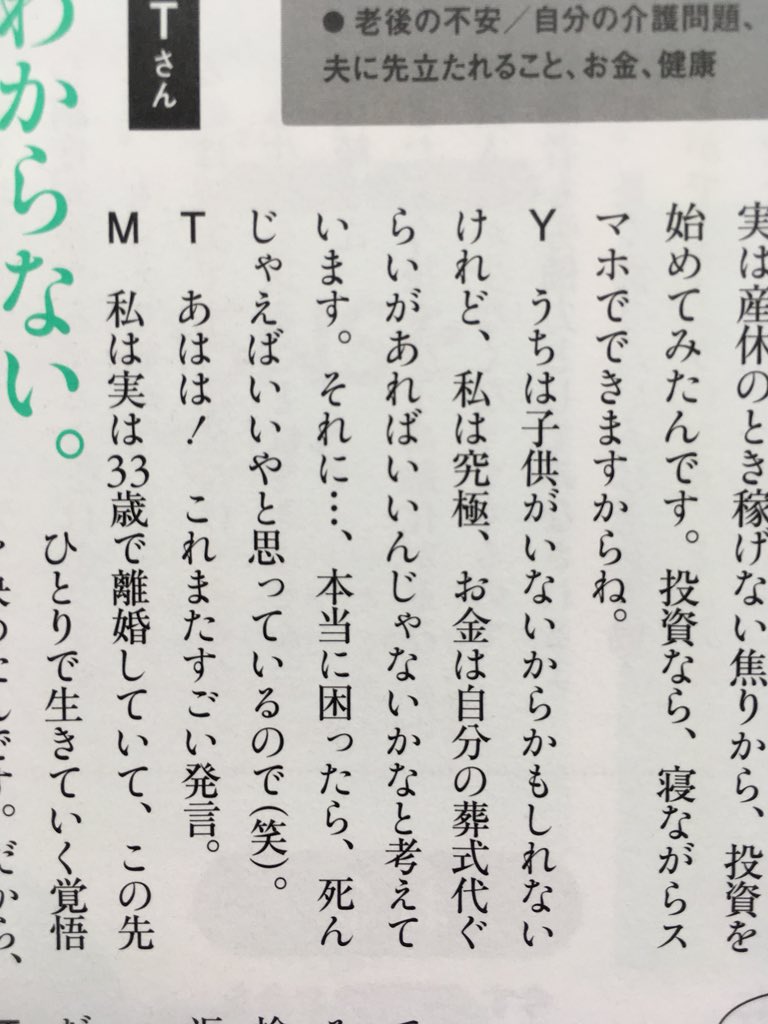 ● 老後の不安／自分の介護問題、
夫に先立たれること、お金、健康
Tさん
実は産休のとき稼げない焦りから、投資を
始めてみたんです。投資なら、寝ながらス
マホでできますからね。
Y　うちは子供がいないからかもしれない
けれど、私は究極、お金は自分の葬式代ぐ
らいがあればいいんじゃないかなと考えて
います。それに…、本当に困ったら、死ん
じゃえばいいやと思っているので（笑）。
T　あはは！　これまたすごい発言。
M　私は実は33歳で離婚していて、この先
ひとりで生きていく覚悟
んです。だから、
わからない。